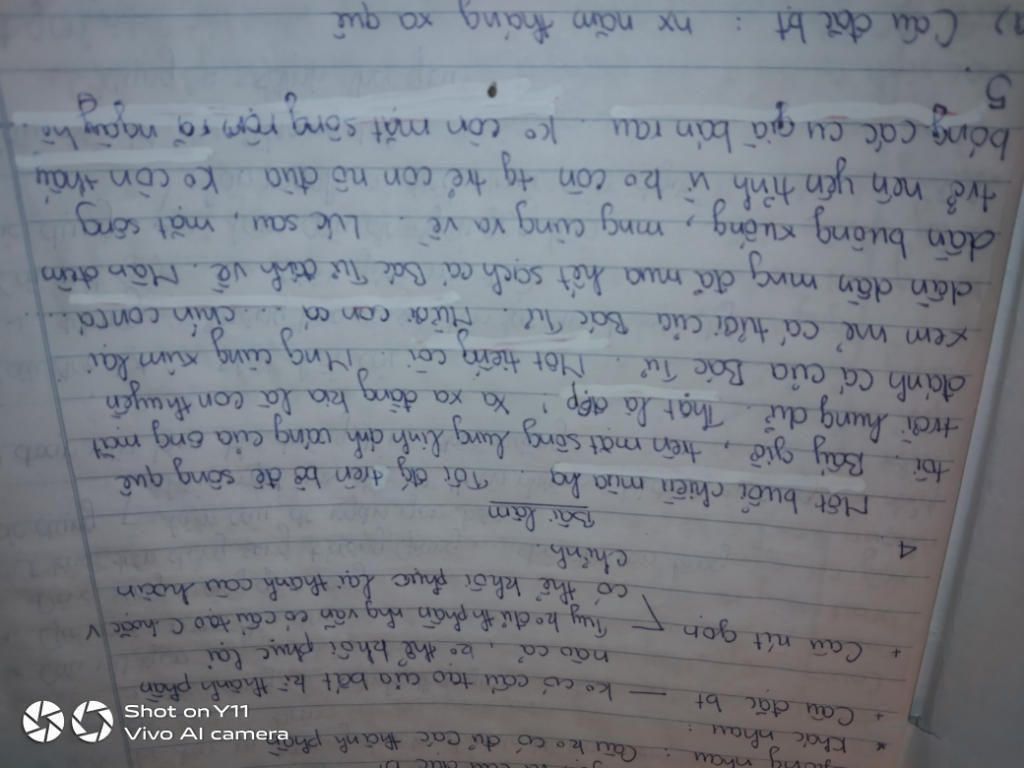 giống nhau : Câu ko có đủ các thành phần
* Khác nhau :
+ Câu đặc bt — ko có cấu tạo của bất kì thành phần
nào cả, ko thể khôi phục lại
+ Câu rút gọn [ Tuy ko đủ th phần nhg vẫn có cấu tạo C hoặc V
có thể khôi phục lại thành câu hoàn
chỉnh.
4
Bài làm
Một buổi chiều mùa hạ. Tôi đg trên bờ đê sông quê
tôi. Bấy giờ, trên mặt sông lung linh ánh vàng của ông mặt
trời hưng dữ. Thật là đẹp! Xa xa đằng kia là con thuyền
đánh cá của Bác Tư. Một tiếng còi. Mng cùng xúm lại
xem mẻ cá tươi của Bác Tư. Mười con cá ... chín con cá...
dần dần mng đã mua hết sạch cá Bác Tư đánh về. Màn đêm
dần buông xuống, mng cũng ra về. Lúc sau, mặt sông
trở nên yên tĩnh vì ko còn tg trẻ con nô đùa. Ko còn thấy
bóng các cụ già bán rau. Ko còn mặt sông rộn rã ngày hè.
5.
a) Câu đặc bt : nx năm tháng xa quê
Shot on Y11
Vivo AI camera